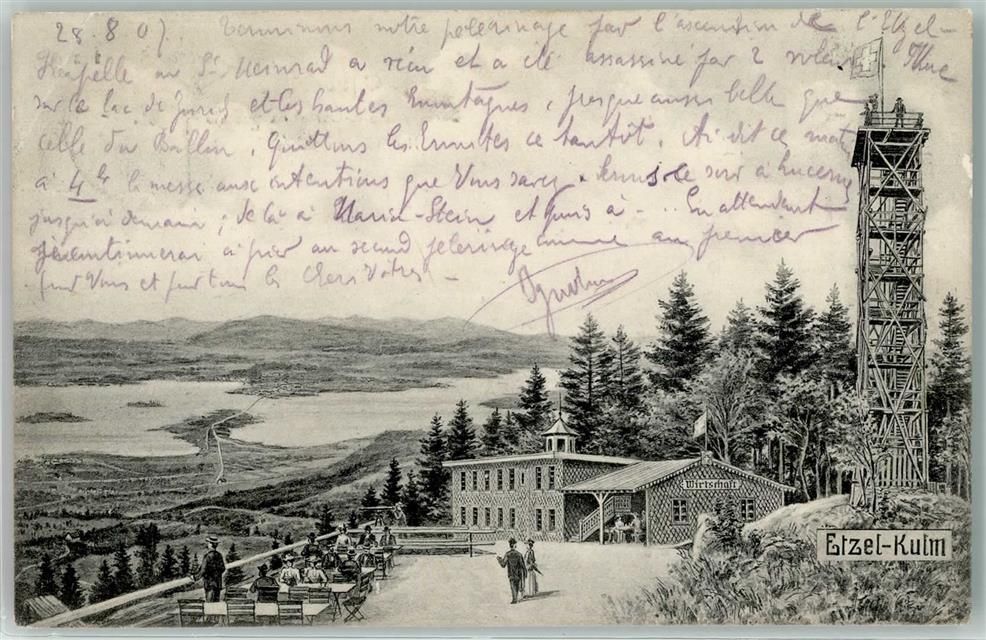 28.8.07. Terminons notre pélerinage par l'ascension de l'Etzel-
Chapelle où St Meinrad a vécu et a été assassiné par 2 voleurs. Vue
sur le lac de Zürich et les hautes montagnes, presque aussi belle que
celle du Ballon. Quittons les Ermites ce tantôt. Ai dit ce matin
à 4h la messe aux intentions que Vous savez. Serons ce soir à Lucerne
jusqu'à demain; de là à Maria-Stein et puis à - .. En attendant
continuerai à prier au second pelerinage comme au premier
pour Vous et pour tous les chers Vôtres -
Wirtschaft
Etzel-Kulm